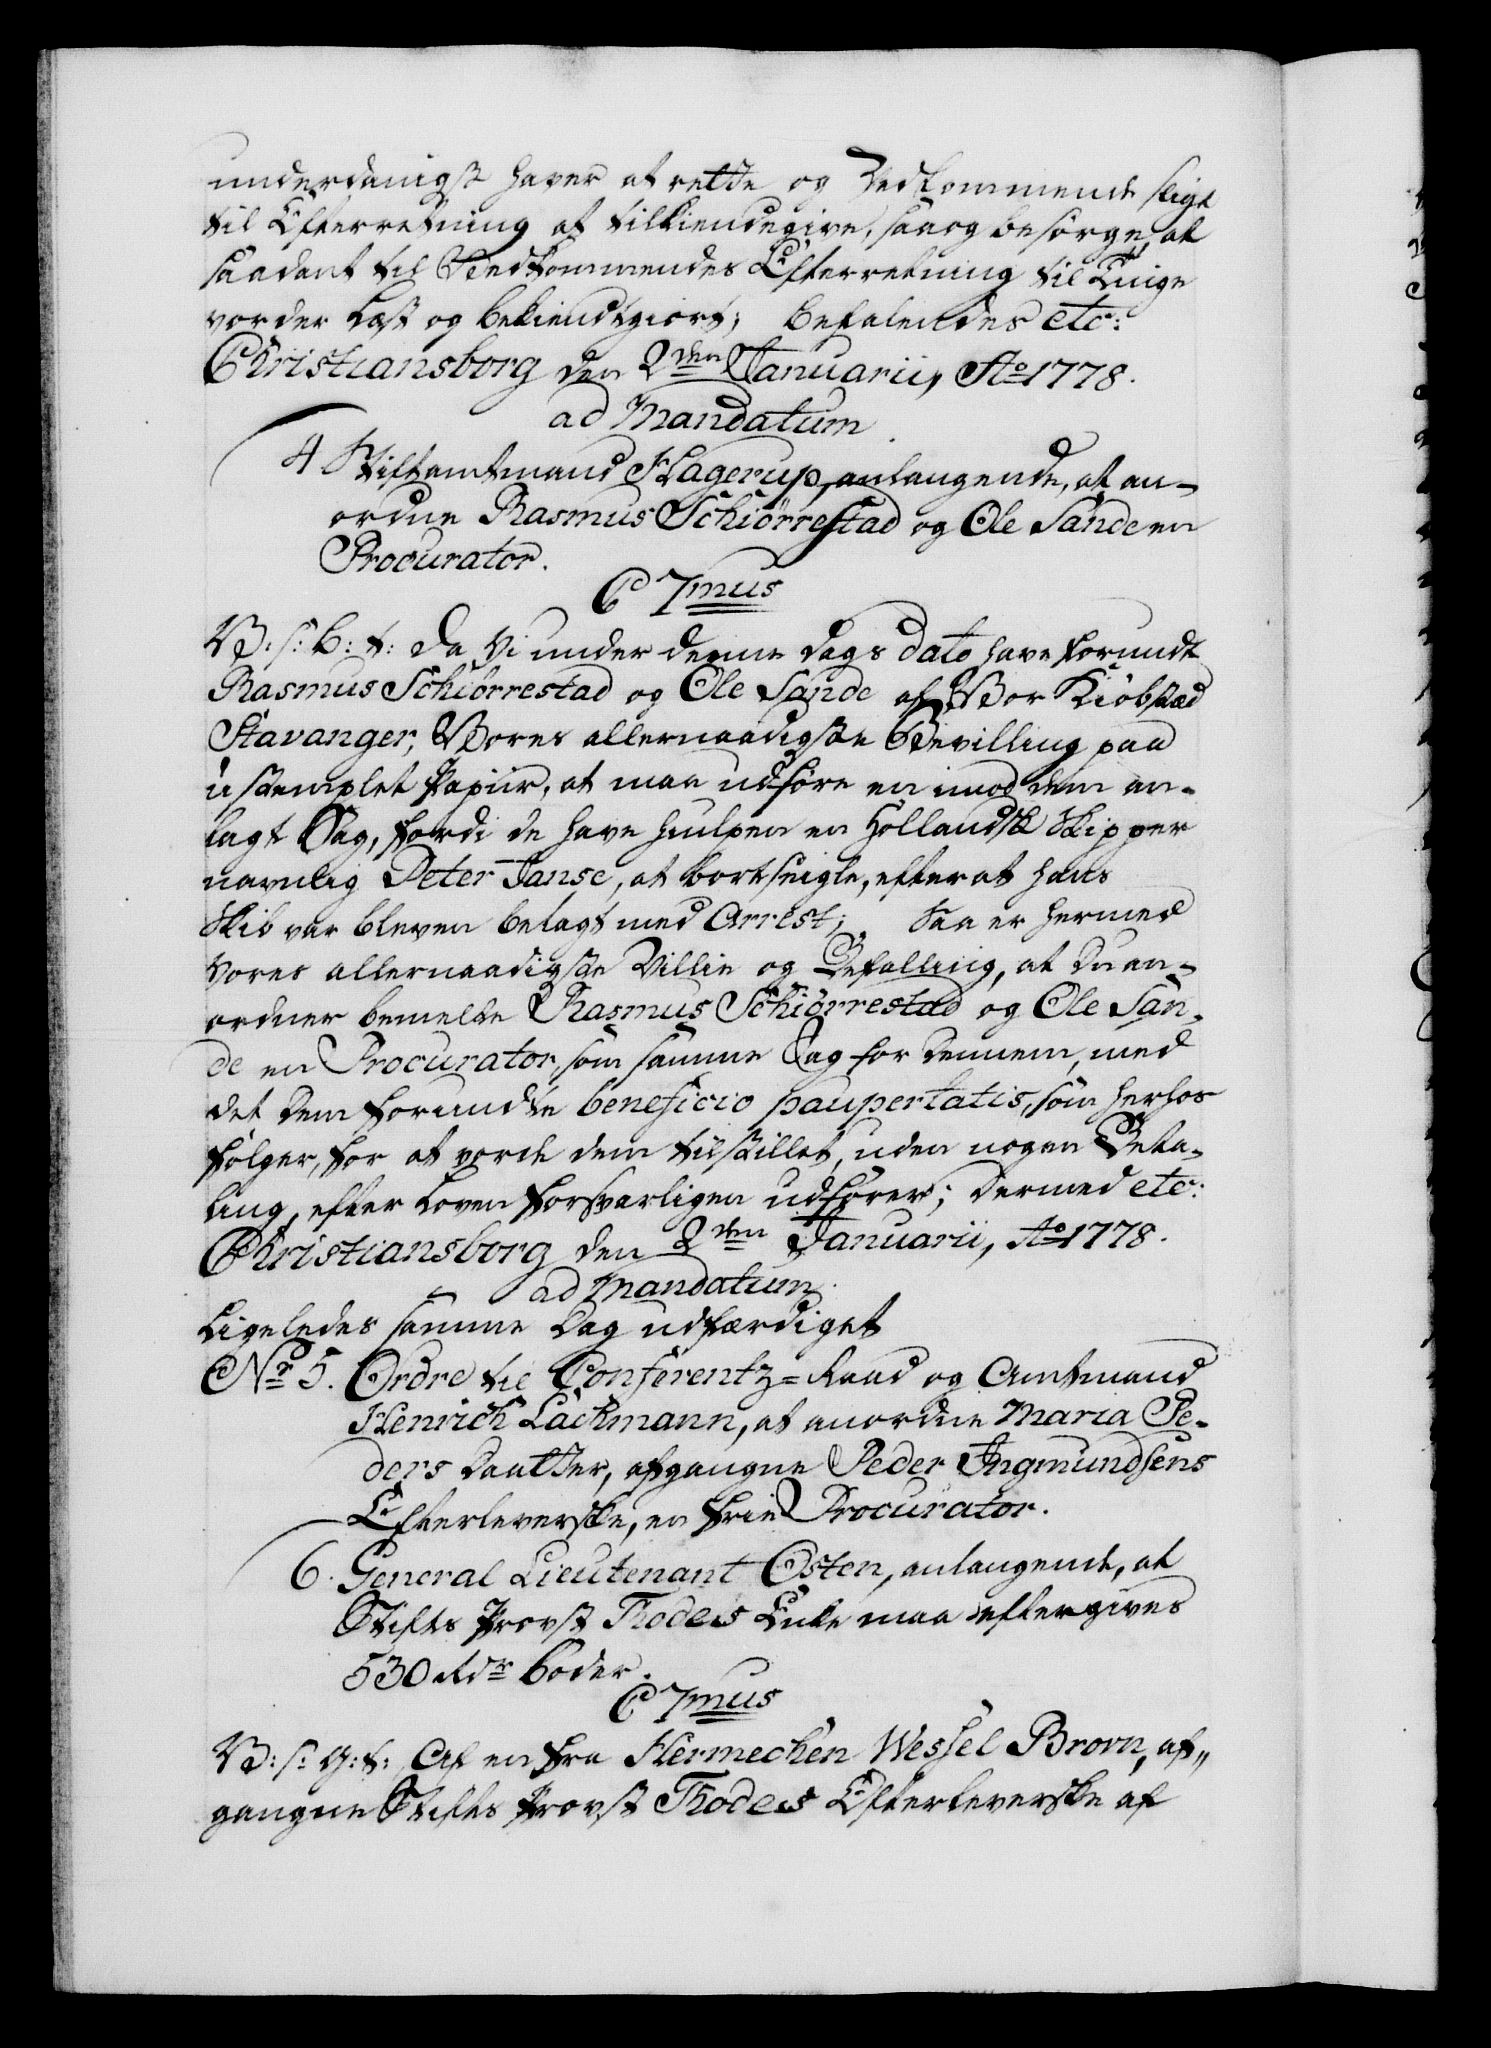 underdanigst haver at rette og Vedkommende sligt
til Efterretning at tilkiendegive, saa og besørge, at
saadant til Vedkommendes Efterretning til Tinge
vorder læst og bekiendtgiort; befalendes etc:
Christiansborg den 2den Januarii, Ao 1778.
ad Mandatum
4 Stiftamtmand Hagerup, anlangende, at an-
ordne Rasmus Schiörrestad og Ole Sande en
Procurator.
C 7mus
V: s: b: t: Da Vi under denne Dags dato have forundt
Rasmus Schiörrestad og Ole Sande af Vor Kiøbstæd
Stavanger, Vores allernaadigste Bevilling paa
u stemplet Papiir, at maa udføre en imod dem an-
lagt Sag, fordi de have hiulpen en Hollandsk Skipper
navnlig Peter Janse, at bortseigle, efter at hans
Skib var bleven belagt med Arrest; Saa er hermed
Vores allernaadigste Villie og Befalling, at Du an-
ordner bemelte Rasmus Schiörrestad og Ole San-
de en Procurator, som samme Sag for dennem, med
det dem forundte beneficio paupertatis, som herhos
følger, for at vorde dem tilstillet, uden nogen Beta-
ling, efter Loven forsvarligen udfører; Dermed etc:
Christiansborg den 2den Januarii, Ao 1778.
ad Mandatum.
Ligeledes samme Dag udfærdiget
No 5. Ordre til Conferentz-Raad og Amtmand
Henrich Lachmann, at anordne Maria Pe-
ders Daatter, afgangne Peder Ingmundsens
Efterleverske, en frie Procurator.
6. General Lieutenant Osten, anlangende, at
Stifts Provst Thodes Enke maa eftergives
530 Rdr Bøder.
C 7mus
V: s: G: t: Af en fra Hermechen Wessel Brovn, af-
gangne Stifts Provst Thodes Efterleverske af